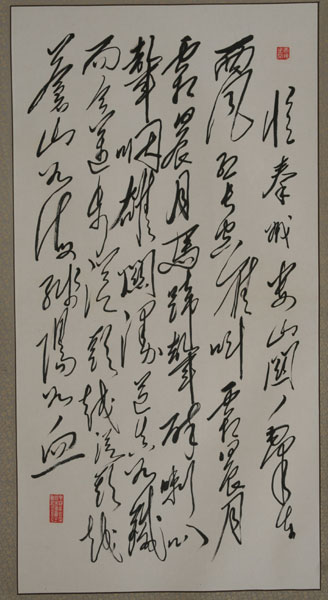 憶秦娥娄山関
西风烈长空雁叫霜晨月
霜晨月馬蹄聲碎喇叭
聲咽雄関漫道真如鐵
而今邁步從頭越從頭越
蒼山如海殘陽如血